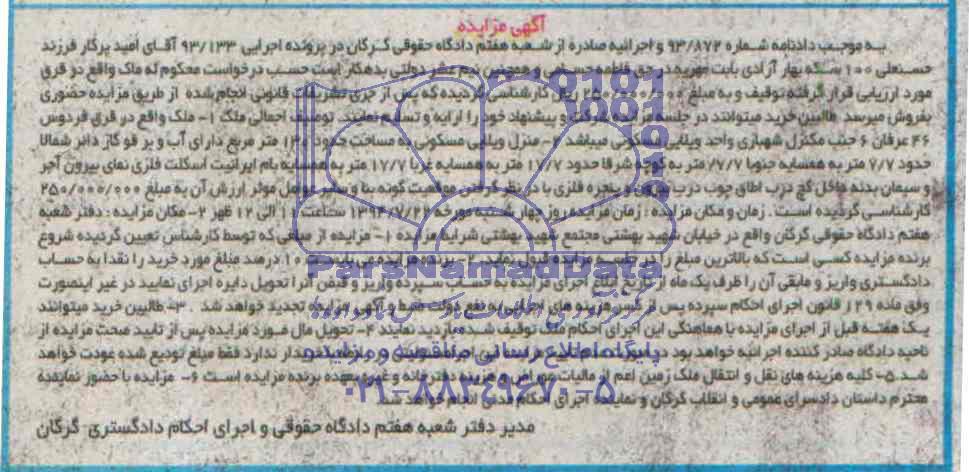 آگهی مزایده
به موجب دادنامه شماره ۹۳/۸۷۲ و اجرائیه صادره از شعبه هفتم دادگاه حقوقی گرگان در پرونده اجرایی ۹۳/۱۳۳ آقای امید پرکار فرزند
حسینعلی ۱۰۰ سکه بهار آزادی بابت مهریه در حق فاطمه و همچنین نیم عشر دولتی بدهکار است حسب درخواست محکوم له ملک واقع در قرق
مورد ارزیابی قرار گرفته توقیف و به مبلغ ۲۵۰/۰۰۰/۰۰۰ ریال کارشناسی گردیده که پس از جری تشریفات قانونی انجام شده از طریق مزایده حضوری
بفروش میرسد طالبین خرید میتوانند در جلسه مزایده شرکت و پیشنهاد خود را ارایه و تسلیم نمایند. توصیف اجمالی ملک ۱- ملک واقع در قرق فردوس
۴۶ عرفان ۶ جنب منزل شهبازی واحد ویلایی مسکونی میباشد منزل ویلایی مسکونی به مساحت حدود متر مربع دارای آب و برق و گاز دائر شمالا
حدود ۷/۷ متر به همسایه جنوبا ۷/۷ متر به کوچه شرقا حدود ۱۷/۷ متر به همسایه غربا ۱۷/۷ متر به همسایه بام ایرانیت اسکلت فلزی نمای بیرون آجر
و سیمان بدنه داخل گچ درب اطاق چوب درب و پنجره فلزی با در نظر گرفتن موقعیت گونه بنا و سایر عوامل موثر ارزش آن به مبلغ ۲۵۰/۰۰۰/۰۰۰
کارشناسی گردیده است. زمان و مکان مزایده: زمان مزایده روز چهارشنبه مورخه ۱۳۹۴/۷/۲۲ ساعت ۱۱ الی ۱۲ ظهر ۲- مکان مزایده: دفتر شعبه
هفتم دادگاه حقوقی گرگان واقع در خیابان شهید بهشتی مجتمع شهید بهشتی شرایط مزایده ۱- مزایده از مبلغی که توسط کارشناس تعیین گردیده شروع
برنده مزایده کسی است که بالاترین مبلغ را در جلسه مزایده قبول نماید. ۲- برنده مزایده می بایست ۱۰ درصد مبلغ مورد خرید را نقدا به حساب
دادگستری واریز و مابقی آن را ظرف یک ماه از تاریخ مزایده به حساب سپرده واریز و قبض آنرا تحویل دایره اجرای نمایید در غیر اینصورت
وفق ماده ۱۲۹ قانون اجرای احکام سپرده پس از کسر هزینه های اجرایی به نفع دولت ضبط و آگهی مزایده تجدید خواهد شد. ۳- طالبین خرید میتوانند
یک هفته قبل از اجرای مزایده با هماهنگی این اجرای احکام ملک توقیف شده بازدید نمایند ۴- تحویل مال مورد مزایده پس از تایید صحت مزایده از
ناحیه دادگاه صادر کننده اجرائیه خواهد بود در ندارد فقط مبلغ تودیع شده عودت خواهد
شد. ۵- کلیه هزینه های نقل و انتقال ملک زمین اعم از مالیات و عوارض و هزینه دفترخانه و غیره بعهده برنده مزایده است ۶- مزایده با حضور نماینده
محترم دادستان دادسرای عمومی و انقلاب گرگان و نماینده اجرای احکام مدنی انجام خواهد شد.
مدیر دفتر شعبه هفتم دادگاه حقوقی و اجرای احکام دادگستری- گرگان
ParsNamadData
پایگاه اطلاع رسانی مناقصه و مزایده
۰۲۱-۸۸۳۴۹۶۷۰-۵